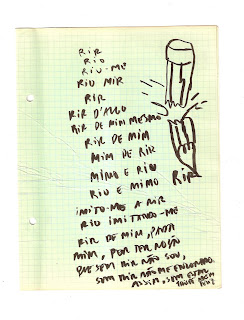 RIR
RIO
RIO-ME
RIO RIR
RIR
RIR D'ALGO
RIR DE MIM MESMO
RIR DE MIM
MIM DE RIR
MIMO E RIO
RIO E MIMO
RIR
IMITO-ME A RIR
RIO IMITANDO-ME
RIR DE MIM, PARA
MIM, POR TER NOÇÃO
QUE SEM RIR NÃO SOU,
SEM RIR NÃO ME ENCONTRO.
ASSIM, SEM ESTAR